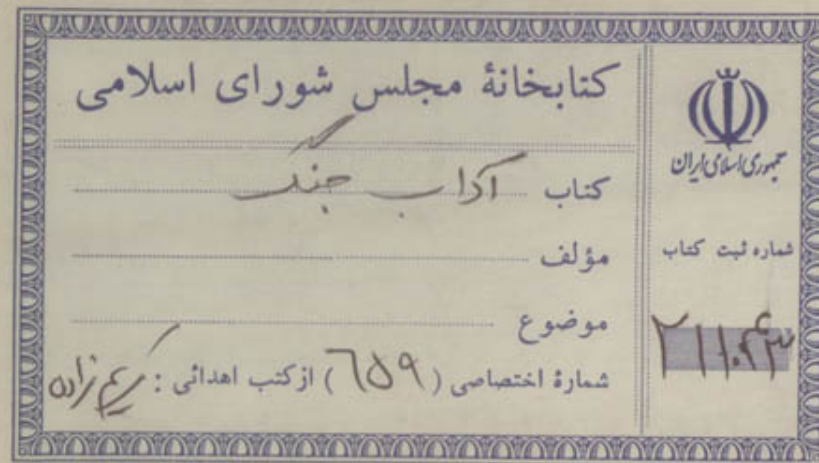 کتابخانهٔ مجلس شورای اسلامی
کتاب آداب جنگ
مؤلف
موضوع
شمارهٔ اختصاصی (۶۵۹) از کتب اهدائی : کریم زاده
جمهوری اسلامی ایران
شماره ثبت کتاب